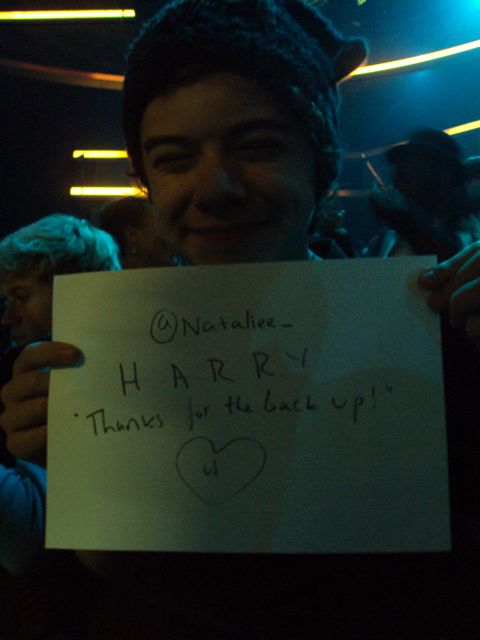 @Nataliee_
HARRY
"Thanks for the back up!"
U